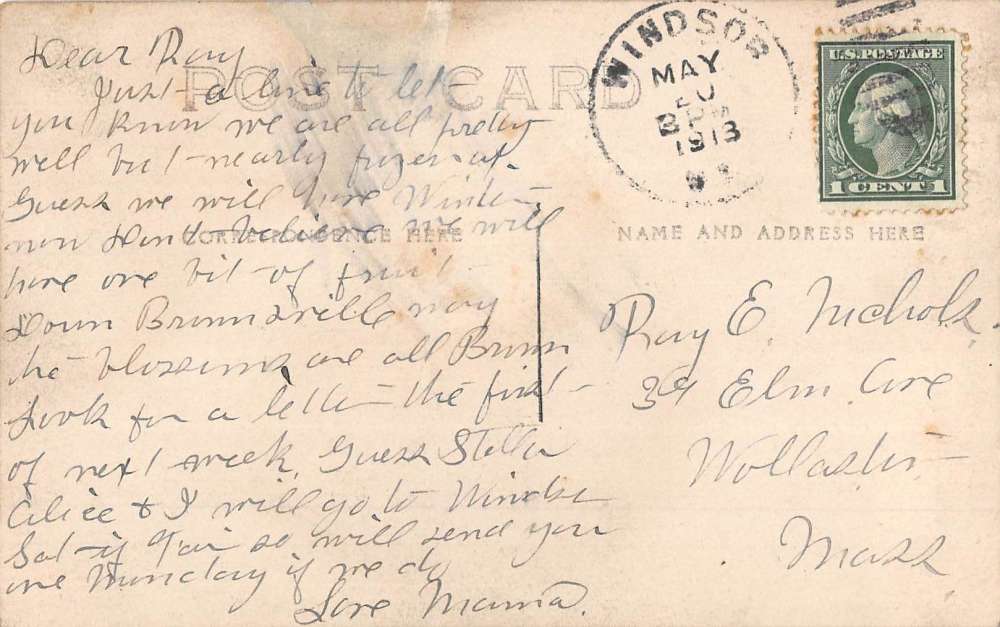 POST CARD
CORRESPONDENCE HERE
NAME AND ADDRESS HERE
WINDSOR
MAY
20
PM
1913
U.S. POSTAGE
1 CENT 1
Dear Ray
Just a line to let
you know we are all pretty
well but nearly frozen up.
Guess we will have Winter
now dont believe we will
have one bit of fruit
down Brownsville way
the blossoms are all Brown
Look for a letter the first
of next week, Guess Stella
Alice & I will go to Windsor
Sat if fair so will send you
one Munday if we do
Love Mama.
Ray E. Nichols,
39 Elm Ave
Wollaston
Mass